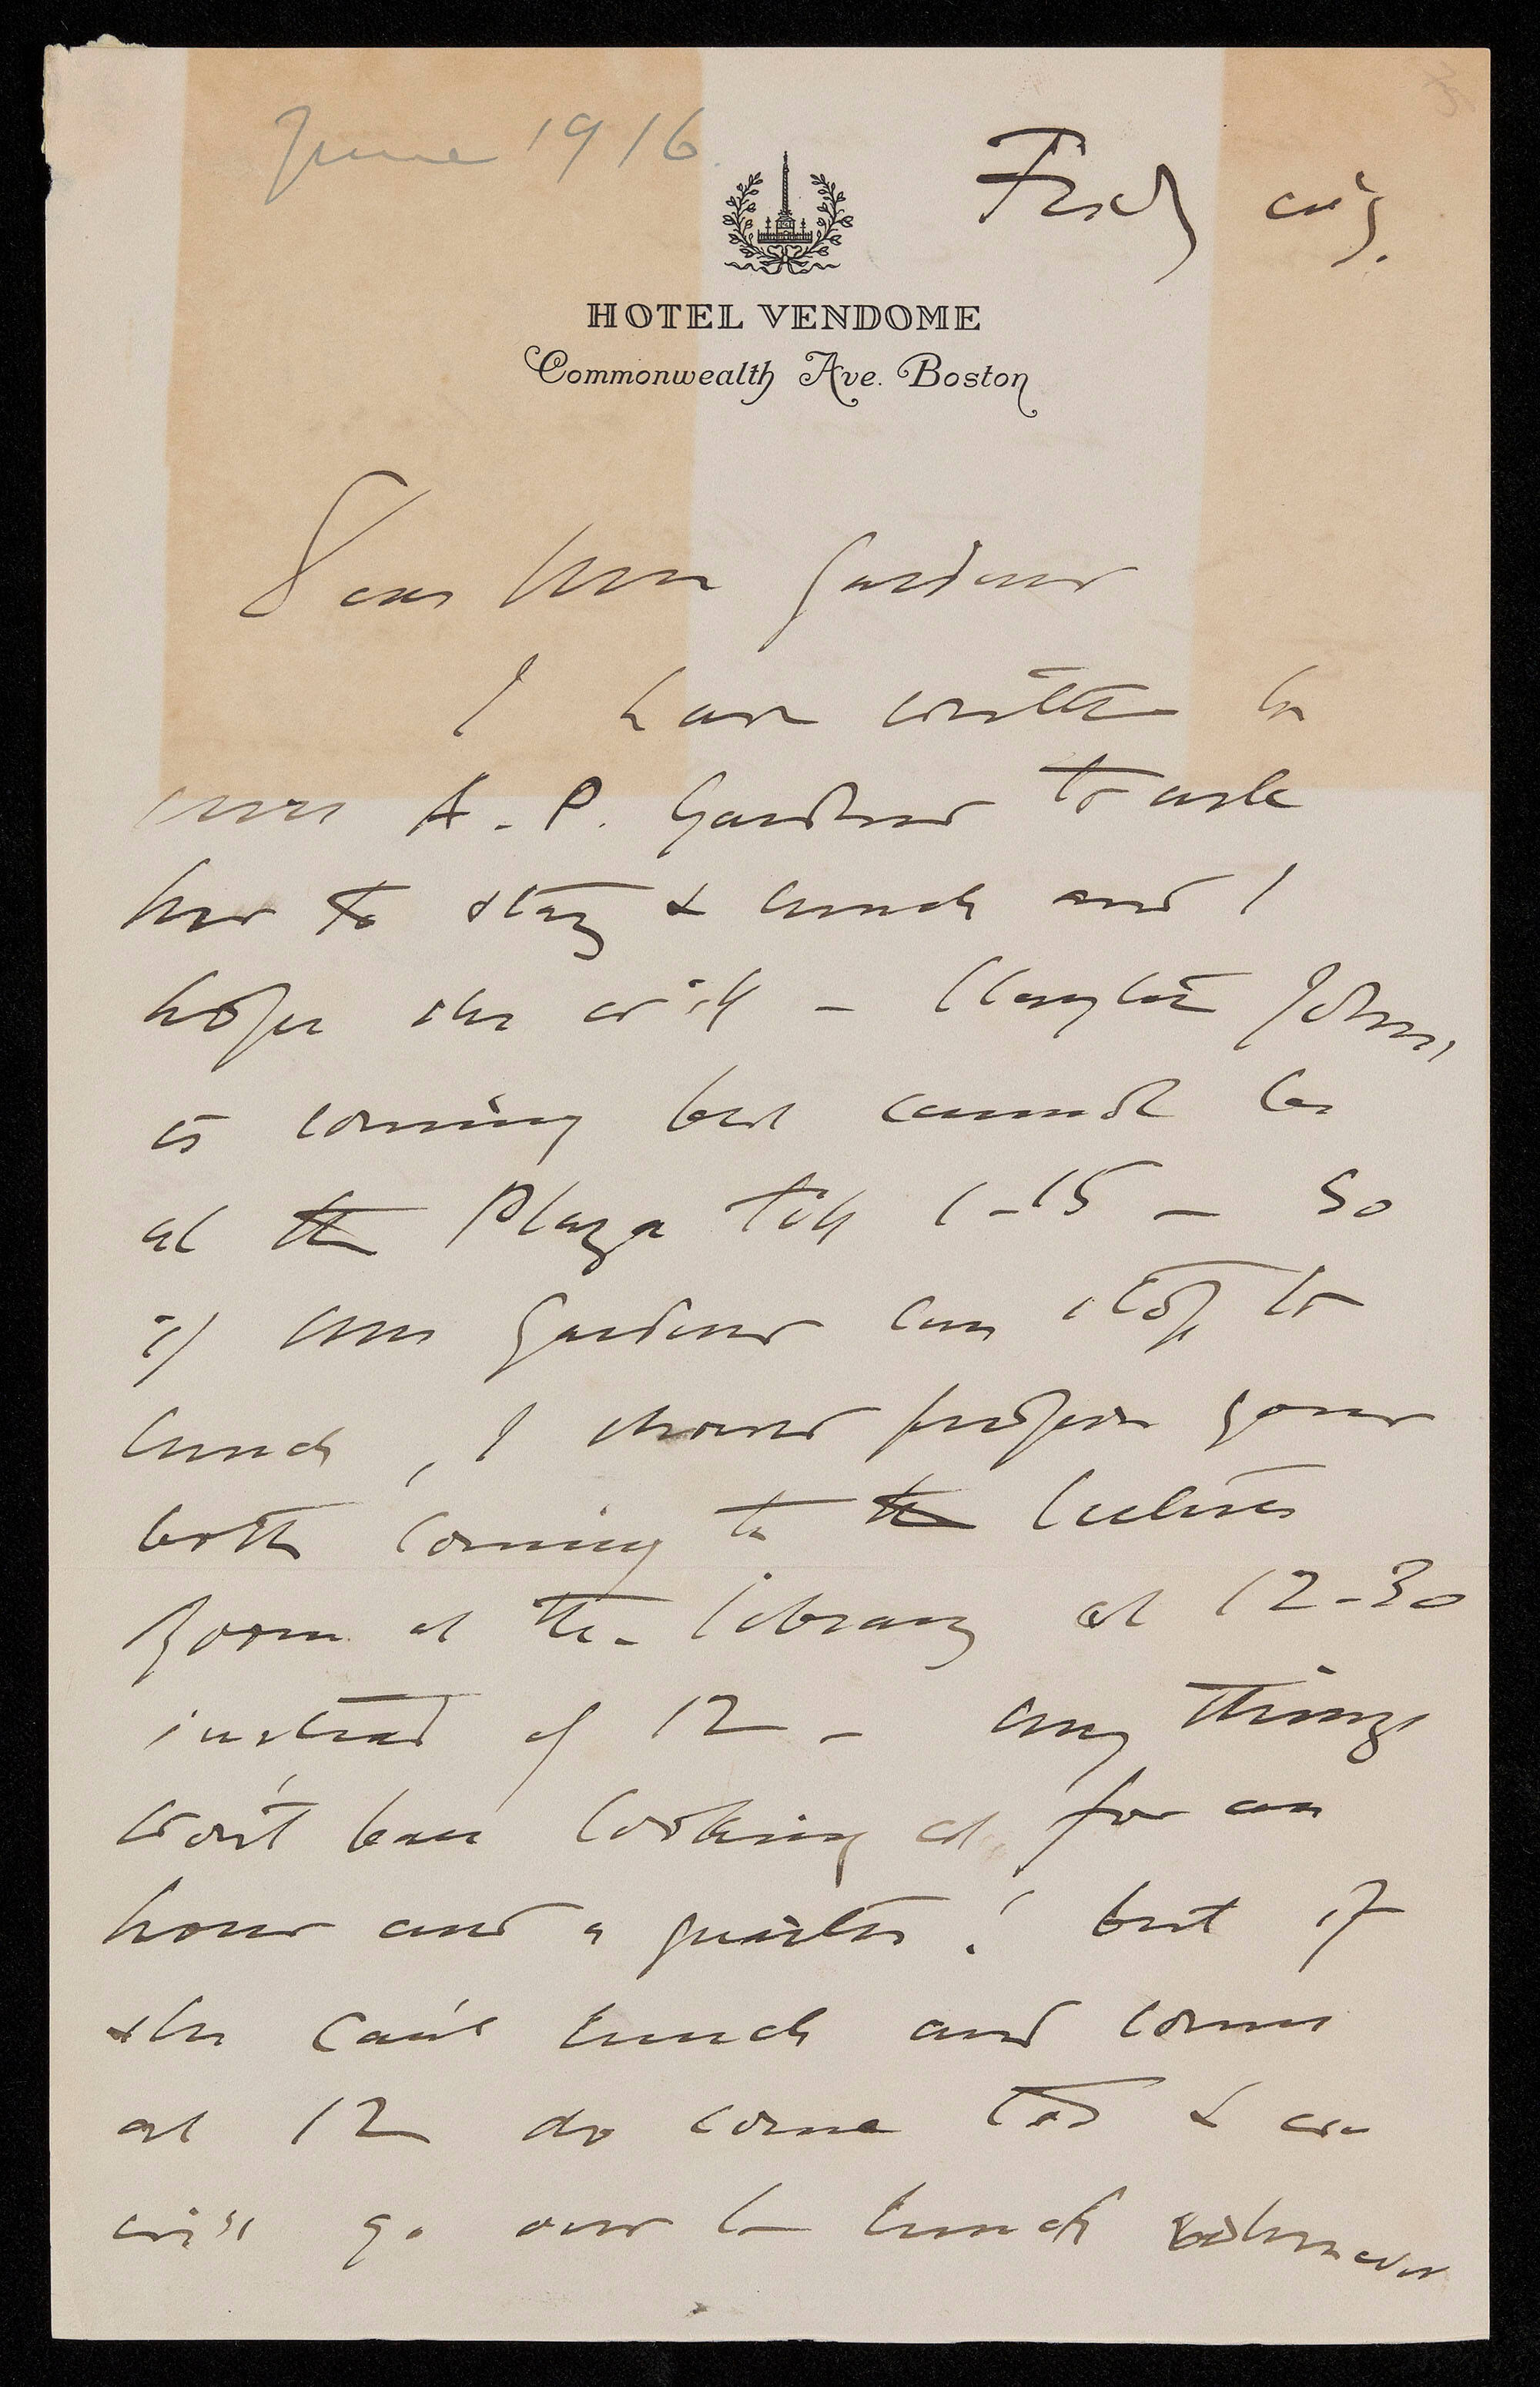 June 1916
Friday evg.
HOTEL VENDOME
Commonwealth Ave. Boston
Dear Mrs Gardner
I have written to
Mrs A. P. Gardner to ask
her to stay & lunch and I
hope she will – Clayton Johns,
is coming but cannot be
at the Plaza till 1-15 – So
if Mrs Gardner can stop to
lunch, I should propose your
both coming to the Lecture
Room at the library at 12-30
instead of 12 – my things
won't bear looking at for an
hour and a quarter! but if
she can't lunch and comes
at 12 do come too & we
will go over to lunch whenever